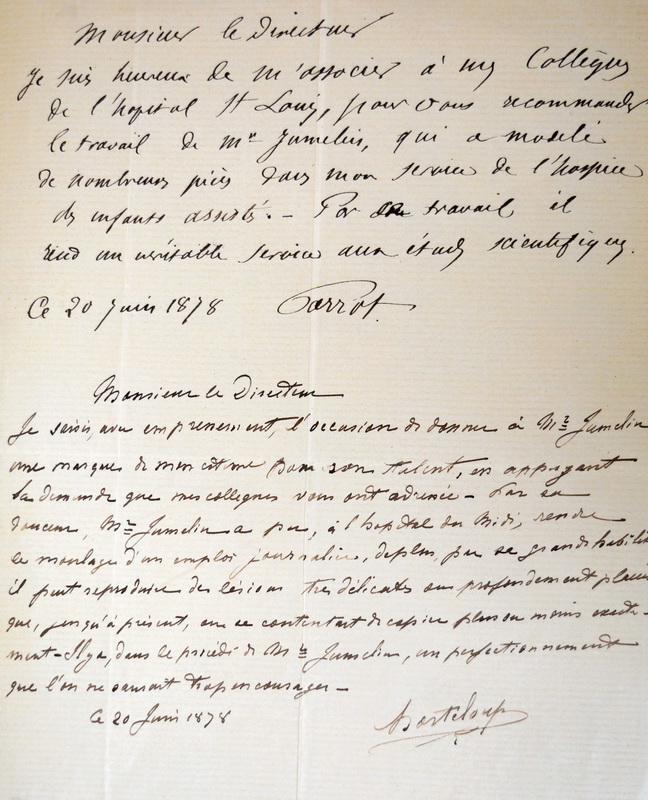 Monsieur le Directeur
Je suis heureux de m'associer à mes Collègues
de l'hopital St Louis, pour vous recommander
le travail de Mr Jumelin, qui a modelé
de nombreuses pièces dans mon service de l'hospice
des enfants assistés. - Par son travail il
rend un véritable service aux études scientifiques.
Ce 20 Juin 1878 Parrot.
Monsieur le Directeur
Je saisis, avec empressement, l'occasion de donner à Mr Jumelin
une marques de mon estime pour son talent, en appuyant
la demande que mes collègues vous ont adressée - Par sa
douceur, Mr Jumelin a pu, à l'hopital du Midi, rendre
le moulage d'un emploi journalier, de plus, par sa grande habileté
il peut reproduire des lésions très délicates ou profondement placées
que, jusqu'à présent, on se contentait de copier plus ou moins exacte-
ment - Il y a, dans le procédé de Mr Jumelin, un perfectionnement
que l'on ne saurait trop encourager -
Ce 20 Juin 1878 Horteloup